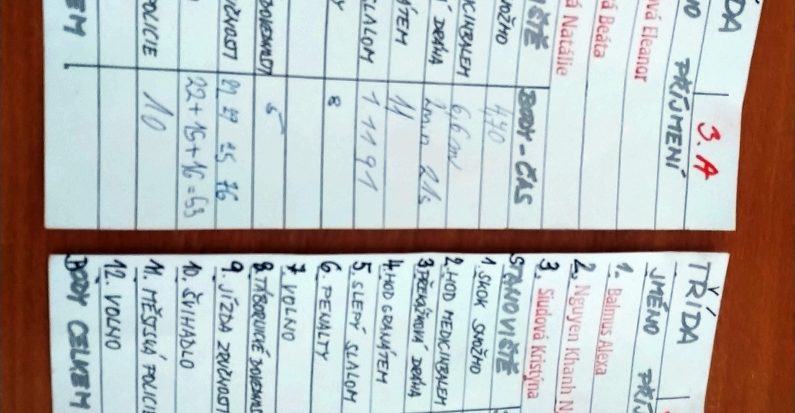 ÍDA 3.A
NO PŘÍJMENÍ
ová Eleanor
á Beáta
á Natálie
IŠTĚ BODY-ČAS
NOŽMO 4,70
MEDICINBALEM 6,6m
Í DRÁHA 2min 21s
TEM 11
SLALOM 1 1 1 9 1
TY 8
DOVEDNOSTI 5
UČNOSTI
22+15+16=53
POLICIE 10
KEM
TŘÍDA
JMÉNO PŘÍ
1. Balmus Alexa
2. Nguyen Khanh N
3. Siudová Kristýna
STANOVIŠTĚ
1. SKOK SNOŽMO
2. HOD MEDICINBALEM
3. PŘEKÁŽKOVÁ DRÁHA
4. HOD GRANÁTEM
5. SLEPÝ SLALOM
6. PENALTY
7. VOLNO
8. TÁBORNICKÉ DOVEDNOS
9. JÍZDA ZRUČNOSTI
10. ŠVIHADLO
11. MĚSTSKÁ POLICIE
12. VOLNO
BODY CELKEM